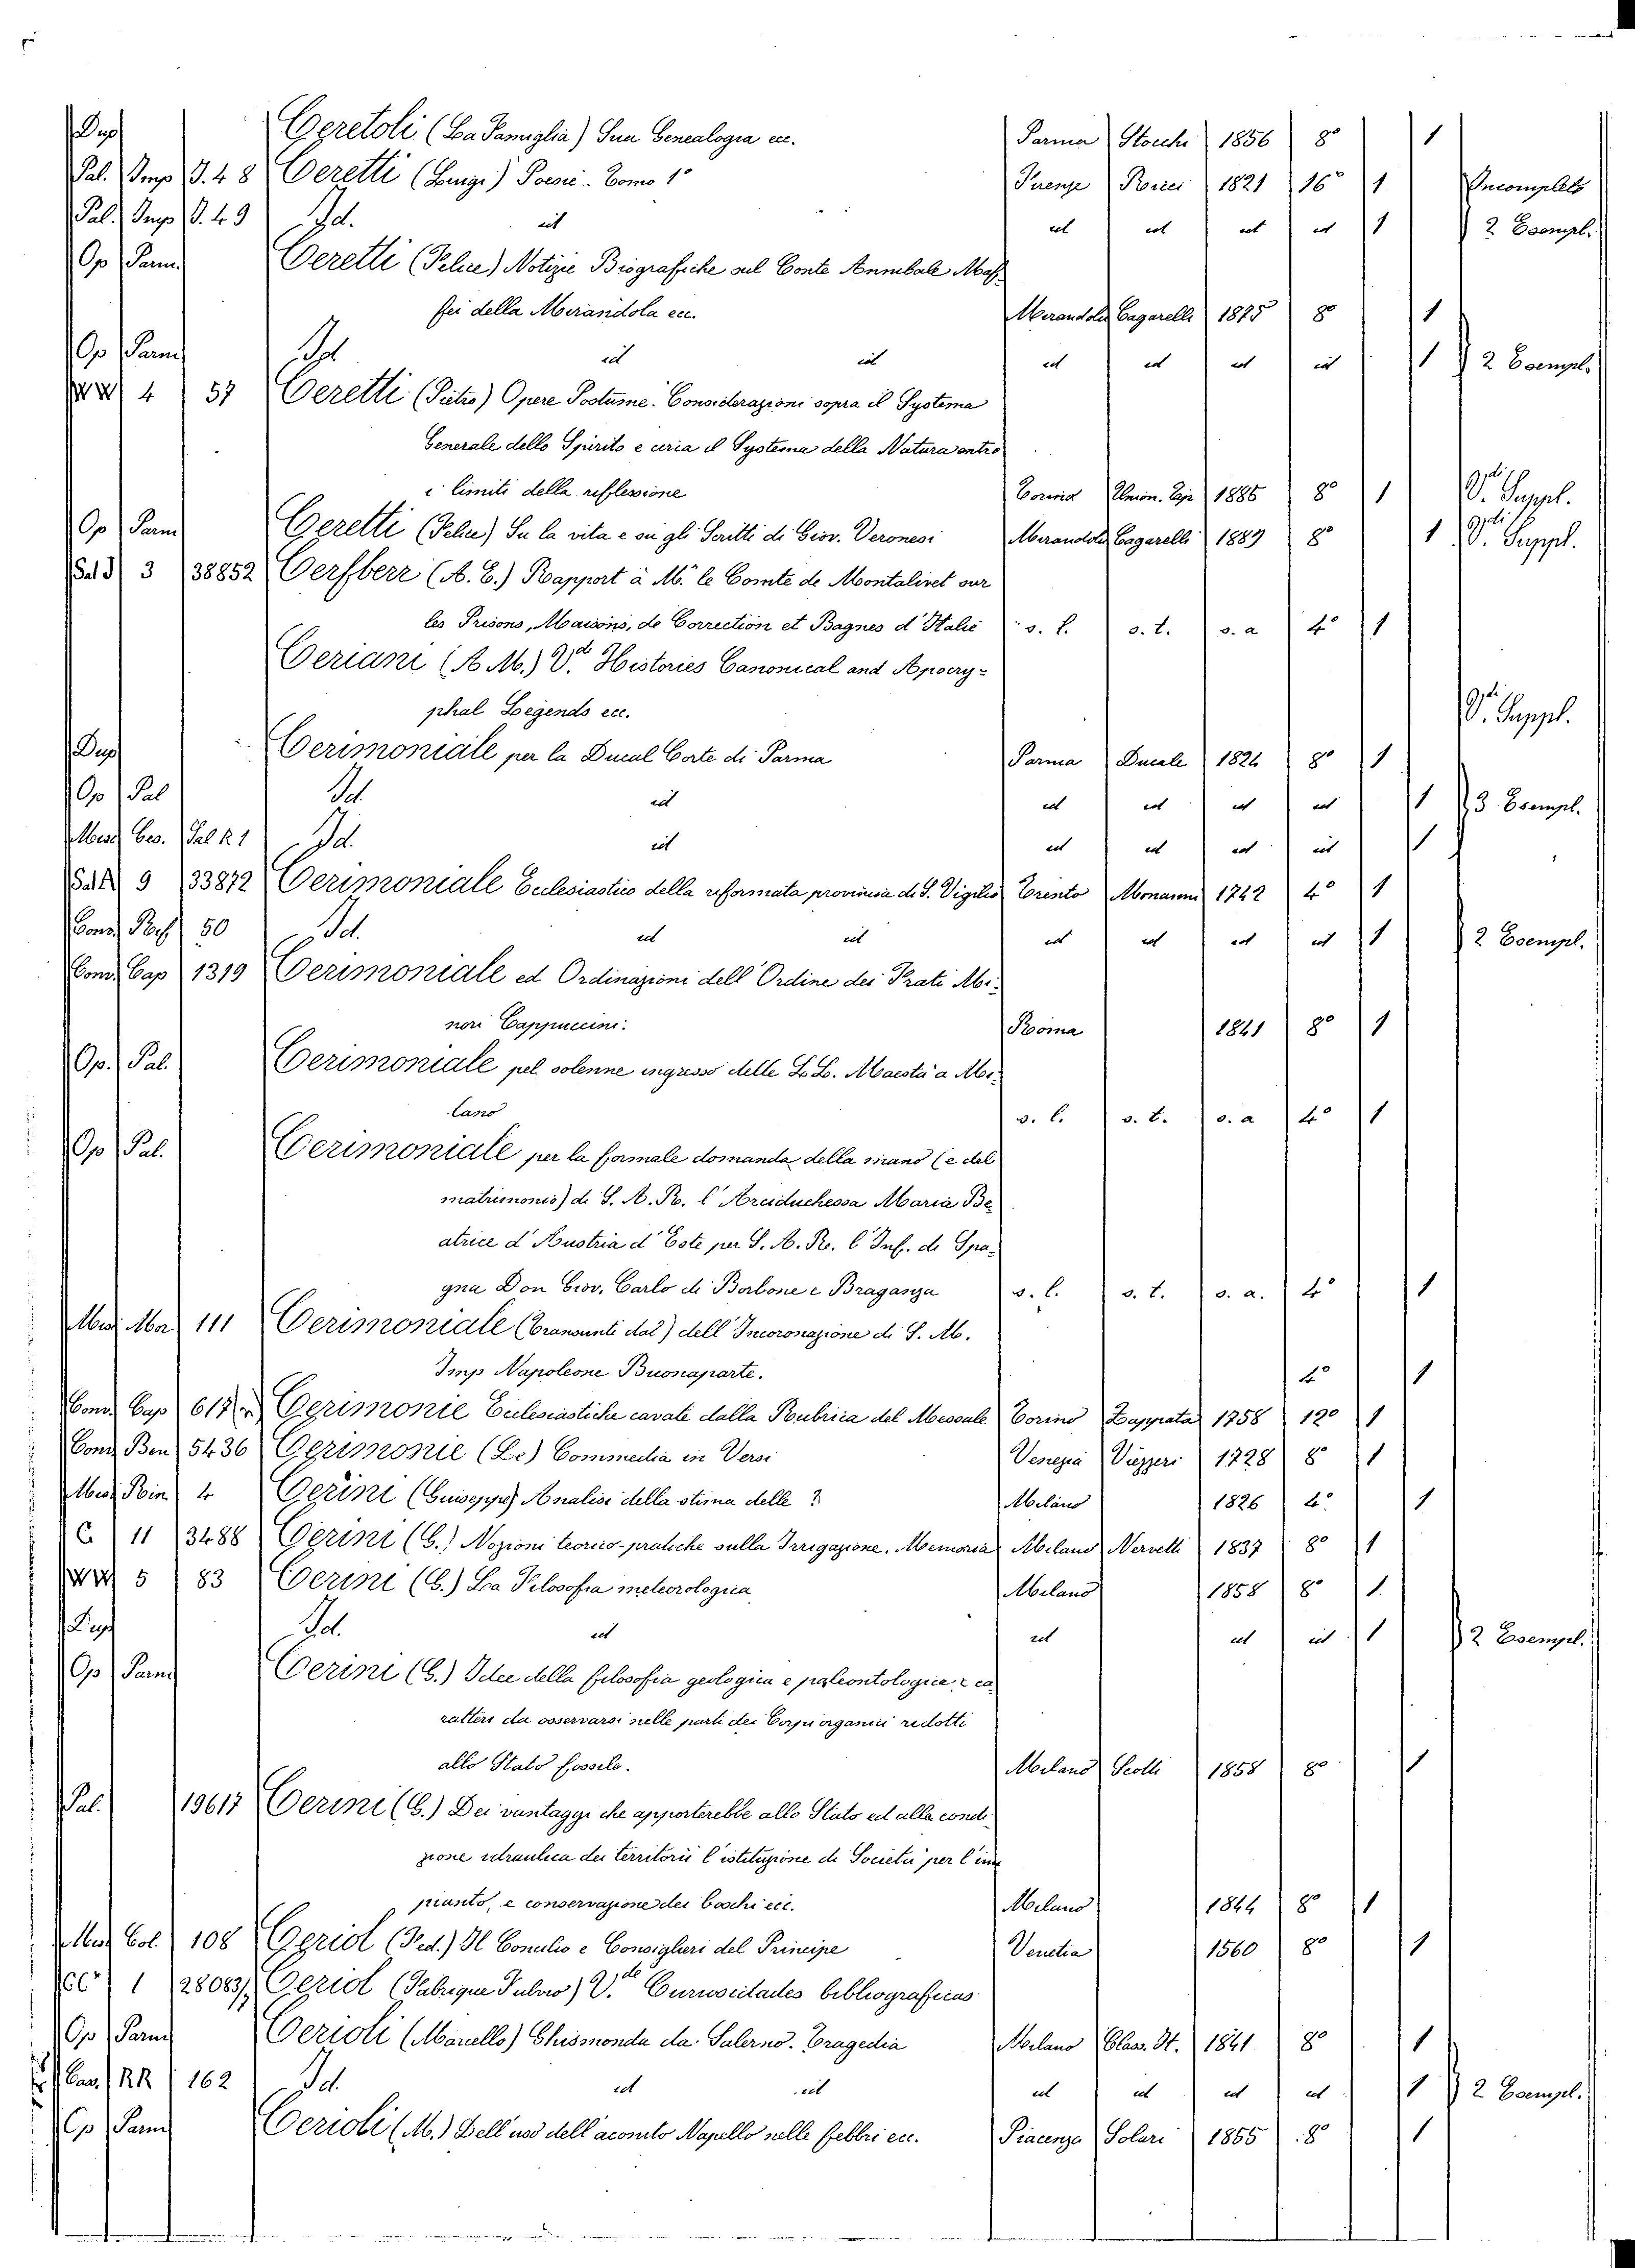 Dup Ceretoli (La Famiglia) Sua Genealogia ecc. Parma Stocchi 1856 8° 1
Pal. Imp I. 48 Ceretti (Luigi) Poesie. Tomo 1° Firenze 1821 16° 1 Incompleto
Pal. Imp I. 49 Id. id id id id id 1 2 Esempl.
Op Parm. Ceretti (Felice) Notizie Biografiche sul Conte Annibale Maf-
fei della Mirandola ecc. Mirandola Cagarelli 1875 8° 1
Op Parm Id id id id id id id 1 2 Esempl.
4 57 Ceretti (Pietro) Opere Postume. Considerazioni sopra il Systema
Generale dello Spirito e circa il Systema della Natura entro
i limiti della reflessione Torino Union. Tip 1885 8° 1 V.di Suppl.
Op Parm Ceretti (Felice) Su la vita e su gli Scritti di Giov. Veronesi Mirandola Cagarelli 1889 8° 1 V.di Suppl.
Sal 3 38852 Cerfberr (A. E.) Rapport à M.r le Comte de Montalivet sur
les Prisons, Maisons, de Correction et Bagnes d'Italie s. l. s. t. s. a 4° 1
Ceriani (A. M.) V.d Histories Canonical and Apocry-
phal Legends ecc. V.di Suppl.
Dup Cerimoniale per la Ducal Corte di Parma Parma Ducale 1824 8° 1
Op Pal Id. id id id id id 1 3 Esempl.
Misc Ces. Pal R 1 Id. id id id id id 1
Sal 9 33872 Cerimoniale Ecclesiastico della reformata provincia di S. Vigilio Trento Monauni 1742 4° 1
Conv. Rif 50 Id. id id id id id id 1 2 Esempl.
Conv. Cap 1319 Cerimoniale ed Ordinazioni dell'Ordine dei Frati Mi-
nori Cappuccini. Roma 1841 8° 1
Op. Pal. Cerimoniale pel solenne ingresso delle L. L. Maestà a Mi-
lano s. l. s. t. s. a 4° 1
Op Pal. Cerimoniale per la formale domanda della mano (e del
matrimonio) di S. A. R. l'Arciduchessa Maria Be
atrice d'Austria d'Este per S. A. R. l'Inf. di Spa-
gna Don Giov. Carlo di Borbone e Braganza s. l. s. t. s. a. 4° 1
Misc. Mor 111 Cerimoniale (Transunti dal) dell'Incoronazione di S. M.
Imp Napoleone Buonaparte. 4° 1
Conv. Cap 617 Cerimonie Ecclesiastiche cavate dalla Rubrica del Messale Torino Zappata 1758 12° 1
Conv Ben 5436 Cerimonie (Le) Commedia in Versi Venezia Viezzeri 1728 8° 1
Misc. Rin 4 Cerini (Guiseppe) Analisi della stima delle ? Milano 1826 4° 1
C 11 3488 Cerini (G.) Nozioni teorico-pratiche sulla Irrigazione. Memoria Milano Nervetti 1837 8° 1
5 83 Cerini (G.) La Filosofia meteorologica Milano 1858 8° 1.
Dup Id. id id id id 1 2 Esempl.
Op Parm Cerini (G.) Idee della filosofia geologica e paleontologica, e ca
ratteri da osservarsi nelle parti dei Corpi organici redotti
allo Stato fossile. Milano Scotti 1858 8° 1
Pal. 19617 Cerini (G.) Dei vantaggi che apporterebbe allo Stato ed alla condi-
zione idraulica dei territorii l'istituzione di Società per l'im
pianto, e conservazione dei boschi ecc. Milano 1844 8° 1
Misc Col. 108 Ceriol (Fed.) Il Concilio e Consiglieri del Principe Venetia 1560 8° 1
1 28083 Ceriol (Fabrique Fulvio) V.de Curiosidades bibliograficas
Op Parm Cerioli (Marcello) Ghismonda da Salerno. Tragedia Milano Class. It. 1841 8° 1
Cas. RR 162 Id. id id id id id id 1 2 Esempl.
Op Parm Cerioli (M.) Dell'uso dell'aconito Napello nelle febbri ecc. Piacenza Solari 1855 8° 1